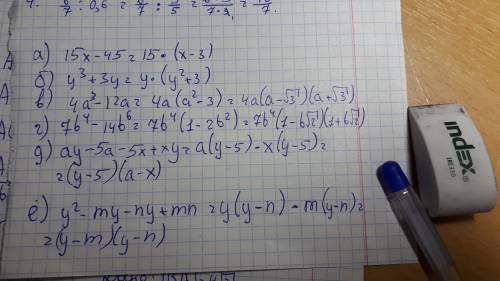 а) 15x-45=15•(x-3)
б) y³+3y=y•(y²+3)
в) 4a³-12a=4a(a²-3)=4a(a-√3)(a+√3)
г) 7b⁴-14b⁶=7b⁴(1-2b²)=7b⁴(1-b√2)(1+b√2)
д) ay-5a-5x+xy=a(y-5)-x(y-5)=
=(y-5)(a-x)
е) y²-my-ny+mn=y(y-n)-m(y-n)=
=(y-m)(y-n)
index